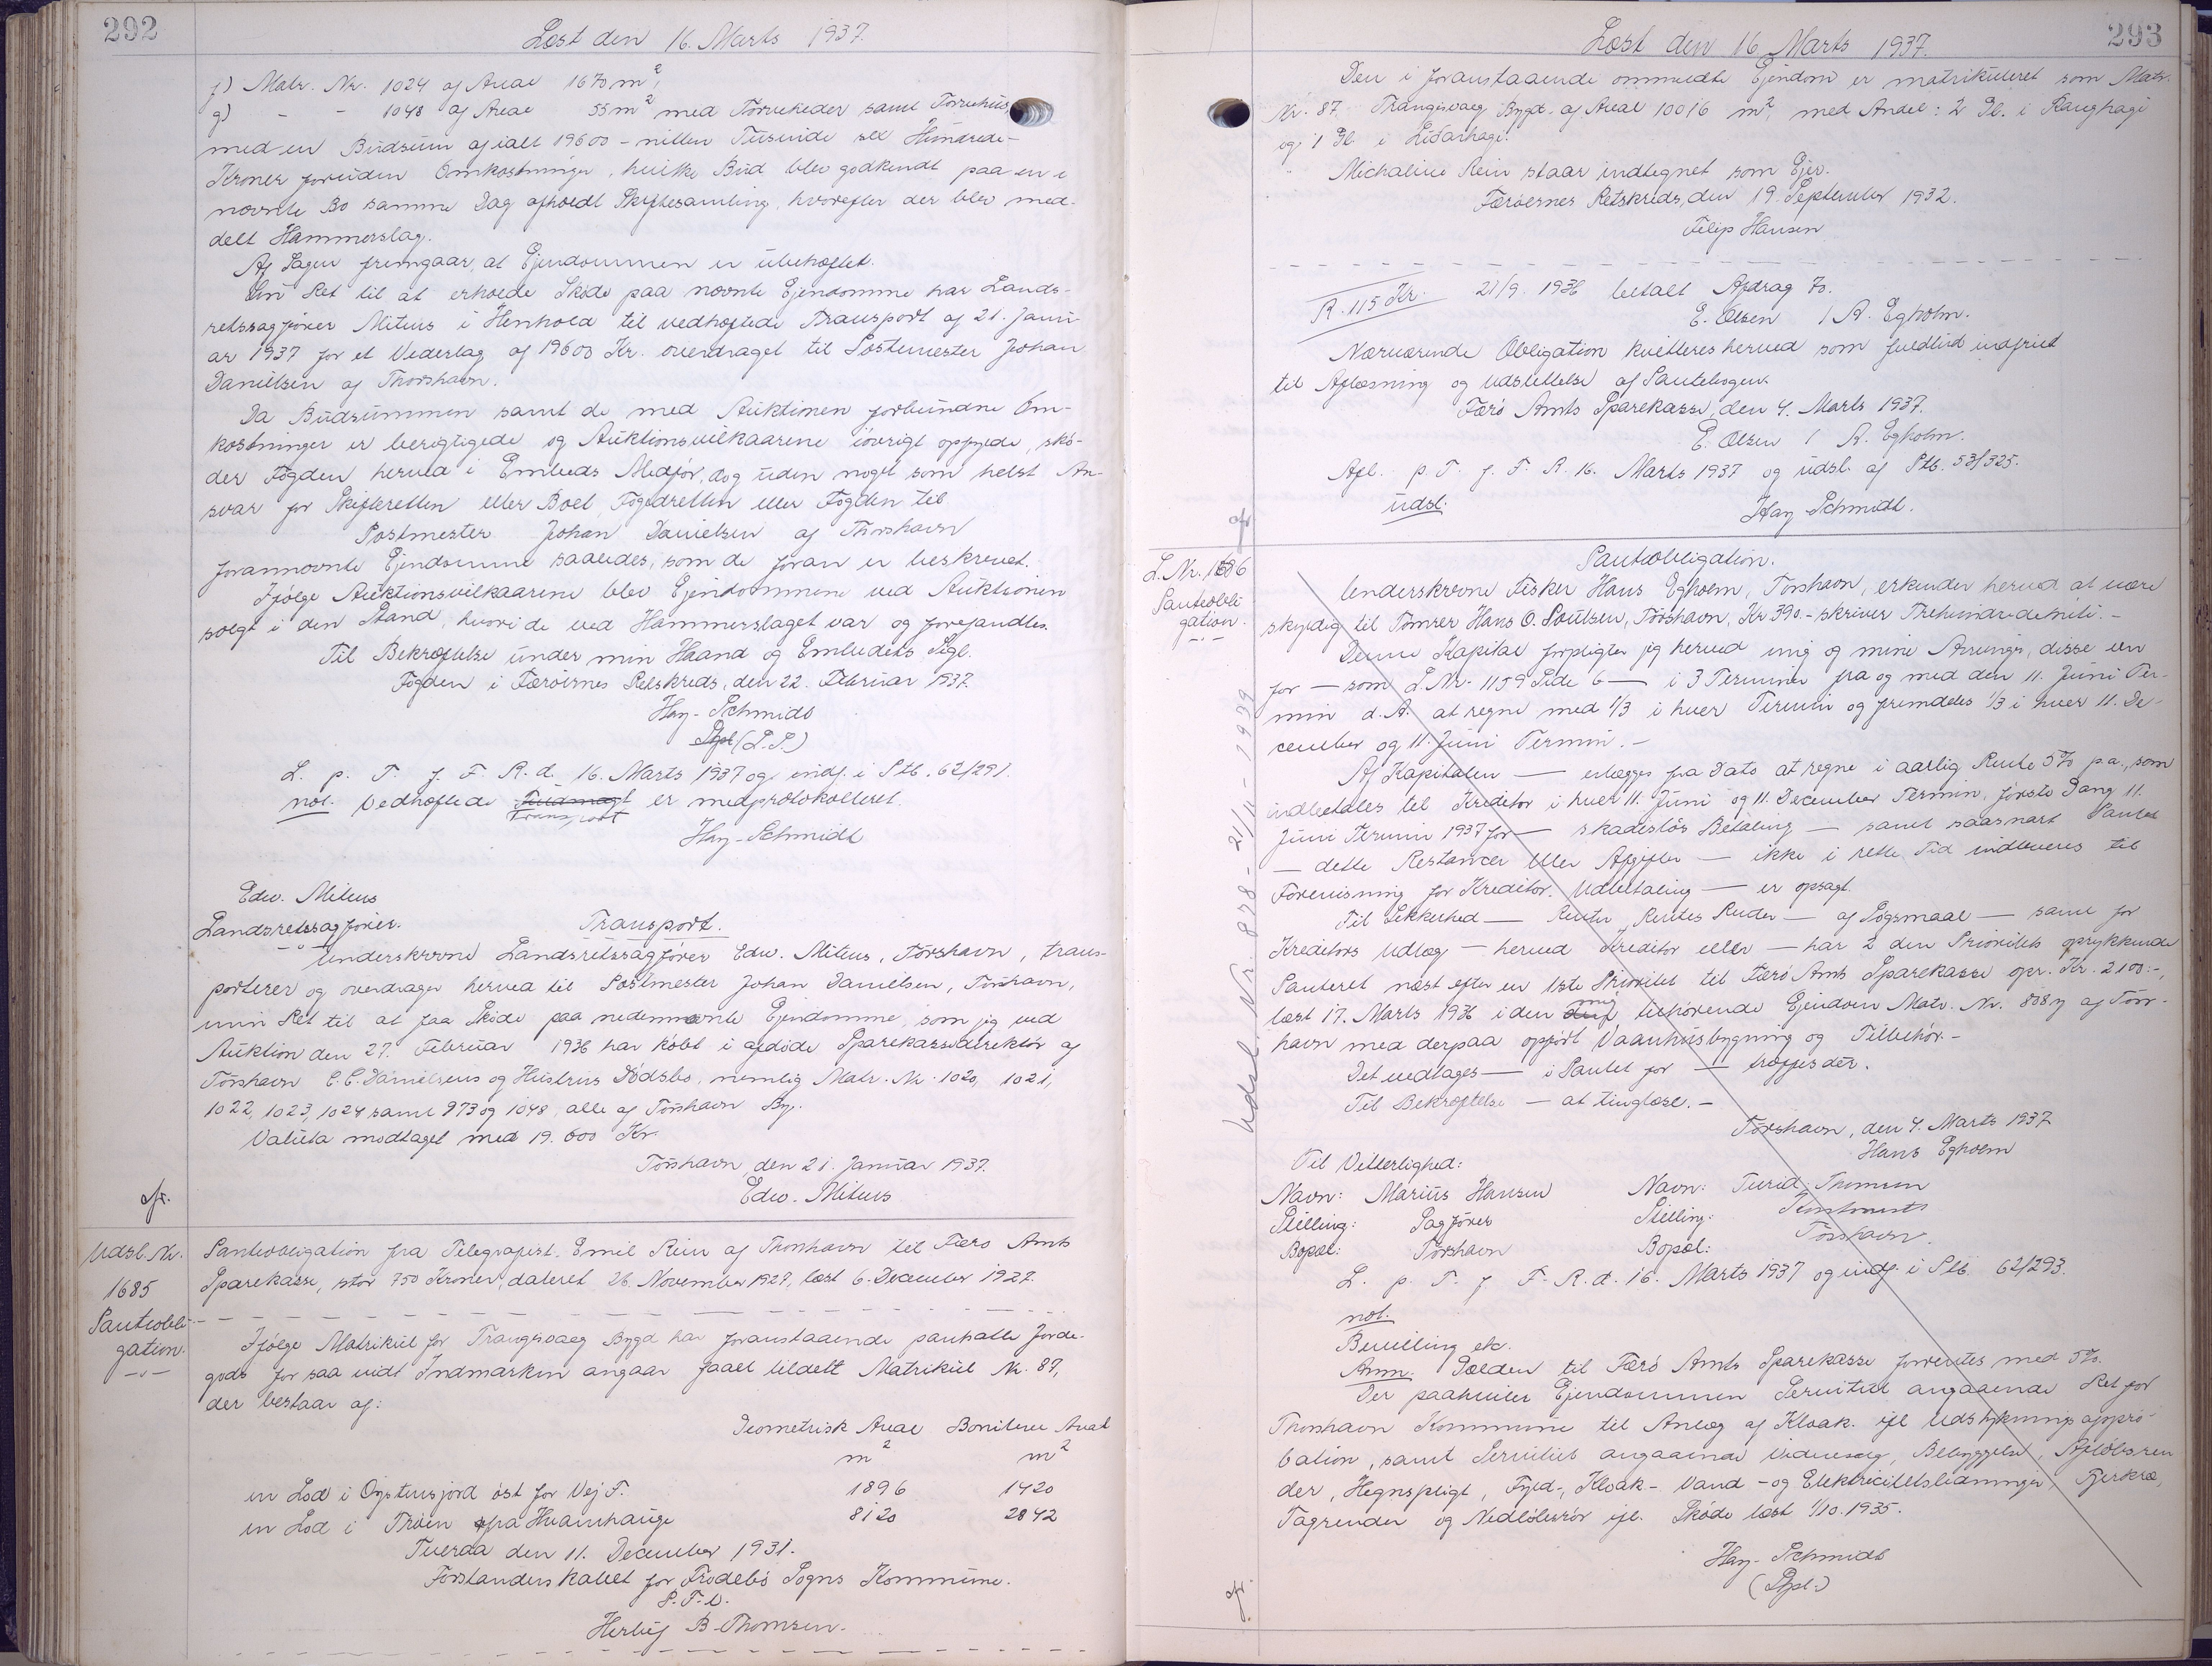 292
Læst den 16. Marts 1937.
f) Matr. Nr. 1024 af Areal 1670 m²,
g) - - 1048 af Areal 55 m² med Tørvekeder samt Tørvehus,
med en Budsum af ialt 19600 - nitten Tusinde sex Hundrede -
Kroner foruden Omkostninger, hvilke Bud blev godkendt paa en i
nævnte Bo samme Dag afholdt Skiftesamling, hvorefter der blev med-
delt Hammerslag.
Af Sagen fremgaar, at Ejendommen er ubehæftet.
Sin Ret til at erholde Skøde paa nævnte Ejendomme har Lands-
retssagfører Mitens i Henhold til vedhæftede Transport af 21. Janu-
ar 1937 for et Vederlag af 19600 Kr. overdraget til Postmester Johan
Danielsen af Thorshavn.
Da Budsummen samt de med Auktionen forbundne Om-
kostninger er berigtigede og Auktionsvilkaarene iøvrigt opfyldte, skø-
der Fogden herved i Embeds Medfør, dog uden noget som helst An-
svar for Skifteretten eller Boet, Fogedretten eller Fogden til
Postmester Johan Danielsen af Thorshavn
forannævnte Ejendomme saaledes, som de foran er beskrevet.
Ifølge Auktionsvilkaarene blev Ejendommene ved Auktionen
solgt i den Stand, hvori de ved Hammerslaget var og forefandtes.
Til Bekræftelse under min Haand og Embedets Segl.
Fogden i Færøernes Retskreds, den 22. Februar 1937.
Hay-Schmidt
Stpl (L.S.)
L. p. T. f. F. R. d. 16. Marts 1937 og indf. i Ptb. 62/291.
not. Vedhæftede Fuldmagt er medprotokolleret.
Transport
Hay-Schmidt
Edw. Mitens
Landsretssagfører.
Transport.
Underskrevne Landsretssagfører Edw. Mitens, Tórshavn, trans-
porterer og overdrager herved til Postmester Johan Danielsen, Tórshavn,
min Ret til at faa Skøde paa nedennævnte Ejendomme, som jeg ved
Auktion den 27. Februar 1936 har købt i afdøde Sparekassedirektør af
Tórshavn C.C. Danielsens og Hustrus Dødsbo, nemlig Matr. Nr. 1020, 1021,
1022, 1023, 1024 samt 973 og 1048, alle af Tórshavn By.
Valuta modtaget med 19.600 Kr.
Tórshavn, den 21. Januar 1937.
Edw. Mitens
Udsl. Nr.
1685
Panteobli-
gation.
Panteobligation fra Telegrafist Emil Rein af Thorshavn til Færø Amts
Sparekasse, stor 750 Kroner, dateret 26. November 1927, læst 6. December 1927.
Ifølge Matrikul for Trangisvaag Bygd har foranstaaende pantsatte Jorde-
gods for saa vidt Indmarken angaar faaet tildelt Matrikul Nr. 87,
der bestaar af:
Geometrisk Areal Boniteret Areal
m² m²
en Lod i Oystensjord øst for Vej F. 1896 1420
en Lod i Trøen fra Hvamhauge 8120 2842
Tveraa den 11. December 1931.
Forstanderskabet for Frodebø Sogns Kommune.
P.F.V.
Herluf B. Thomsen.
293
Læst den 16. Marts 1937.
Den i foranstaaende ommeldte Ejendom er matrikuleret som Matr.
Nr. 87 Trangisvaag Bygd, af Areal 10016 m², med Andel: 2 Gl. i Ranghagi
og 1 Gl. i Liðarhagi.
Michaline Rein staar indtegnet som Ejer.
Færøernes Retskreds, den 19. September 1932.
Filip Hansen
R. 115 Kr. 21/9. 1936 betalt Afdrag 70.
E. Olsen / A. Egholm.
Nærværende Obligation kvitteres herved som fuldtud indfriet
til Aflæsning og Udslettelse af Pantebogen.
Færø Amts Sparekasse, den 4. Marts 1937.
E. Olsen / A. Egholm.
Afl. p. T. f. F. R. 16. Marts 1937 og udsl. af Ptb. 53/325.
udsl.
Hay-Schmidt.
L. Nr. 1686
Panteobli
gation.
Udsl. Nr. 878 - 21/11 - 1939
Panteobligation.
Underskrevne Fisker Hans Egholm, Tórshavn, erkender herved at være
skyldig til Tømrer Hans O. Poulsen, Tórshavn, Kr. 390.- skriver Trehundredeniti.-
Denne Kapital forpligter jeg herved mig og mine Arvinger, disse en
for — som L.Nr. 1159 Side 6 — i 3 Terminer fra og med den 11. Juni Ter-
min d.A. at regne med 1/3 i hver Termin og fremdeles 1/3 i hver 11. De-
cember og 11. Juni Termin.-
Af Kapitalen — erlægges fra Dato at regne i aarlig Rente 5% p.a., som
indbetales til Kreditor i hver 11. Juni og 11. December Termin, første Gang 11.
Juni Termin 1937 for — skadesløs Betaling — samt saasnart Pantet
— dette Restancer eller Afgifter — ikke i rette Tid indleveres til
Forevisning for Kreditor. Udbetaling — er opsagt.
Til Sikkerhed — Renter, Rentes Renter — af Søgsmaal — samt for
Kreditors Udlæg — herved Kreditor eller — har 2 den Prioritets oprykkende
Panteret næst efter en 1ste Prioritet til Færø Amts Sparekasse opr. Kr. 2100.-,
læst 17. Marts 1936 i den mig tilhørende Ejendom Matr. Nr. 808 y af Tórs-
havn med derpaa opført Vaaningshusbygning og Tilbehør.-
Det vedtages — i Pantet for — træffes der.
Til Bekræftelse — at tinglæse.-
Tórshavn, den 4. Marts 1937
Hans Egholm
Til Vitterlighed:
Navn: Marius Hansen Navn: Turid Thomsen
Stilling: Sagfører Stilling: Kontorist
Bopæl: Tórshavn Bopæl: Tórshavn.
L. p. T. f. F. R. d. 16. Marts 1937 og indf. i Ptb. 62/293.
not.
Bevilling etc.
Anm. Gælden til Færø Amts Sparekasse forrentes med 5%.
Der paahviler Ejendommen Servitut angaaende Ret for
Thorshavn Kommune til Anlæg af Kloak ifl. Udstykningsappro-
bation, samt Servitut angaaende Videresalg, Bebyggelse, Afløbsren
der, Hegnspligt, Fyld-, Kloak-, Vand- og Elektricitetsledninger, Fjerkræ,
Tagrender og Nedløbsrør ifl. Skøde læst 1/10. 1935.
Hay-Schmidt
(Stpl.)